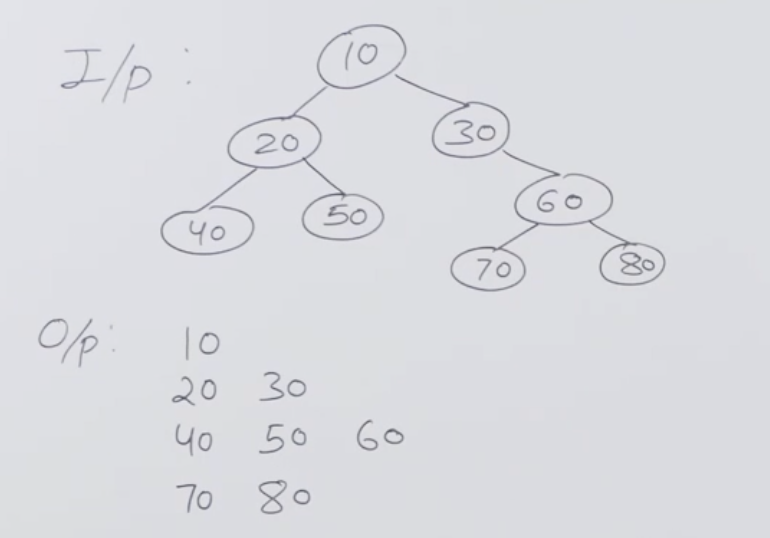 I/p :
10
20 30
40 50 60
70 80
O/p: 10
20 30
40 50 60
70 80